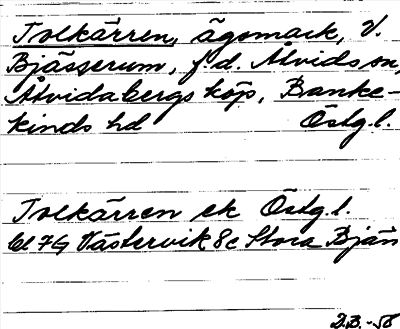 Tolkärren, ägomark, V.
Bjässerum, f.d. Åtvids sn,
Åtvidabergs köp, Banke-
kinds hd Östg.l.
Tolkärren ek Östg.l.
bl 7G Västervik 8c Stora Bjän
2.B.-58